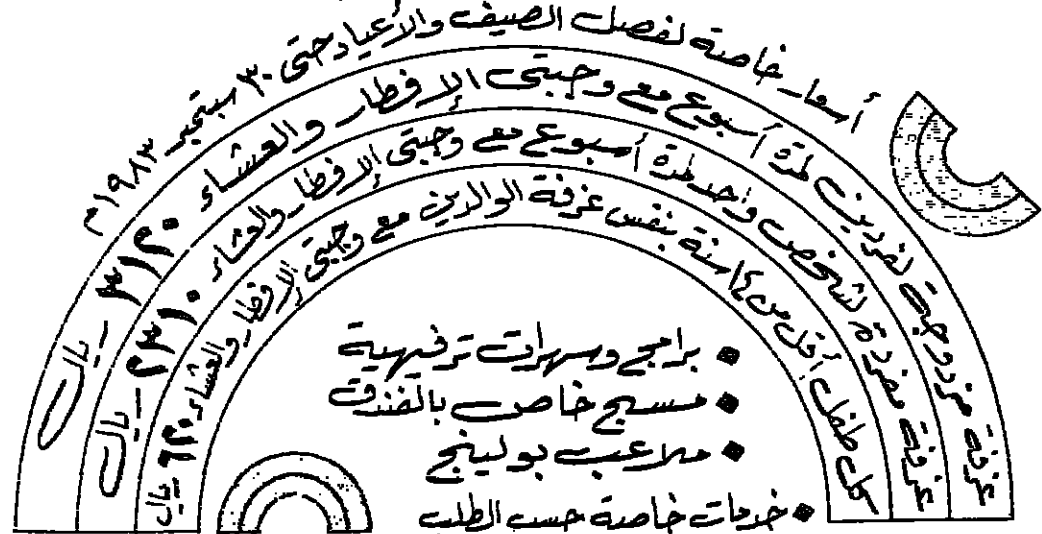 أسعار خاصة لفصل الصيف والأعياد حتى ٣٠ سبتمبر ١٩٨٣م
غرفة مزدوجة لفردين لمدة أسبوع مع وجبتى الإفطار والعشاء ٣١٢٠ ريال
غرفة مفردة لشخص واحد لمدة أسبوع مع وجبتى الإفطار والعشاء ٢٣١٠ ريال
كل طفل أقل من ١٤ سنة بنفس غرفة الوالدين مع وجبتى الإفطار والعشاء ٦٢٠ ريال
• برامج وسهرات ترفيهية
• مسبح خاص بالفندق
• ملاعب بولينج
• خدمات خاصة حسب الطلب